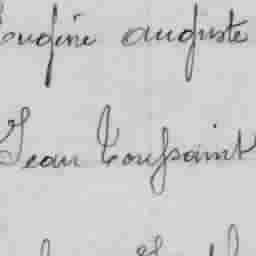 Eugène auguste
Jean Toussaint